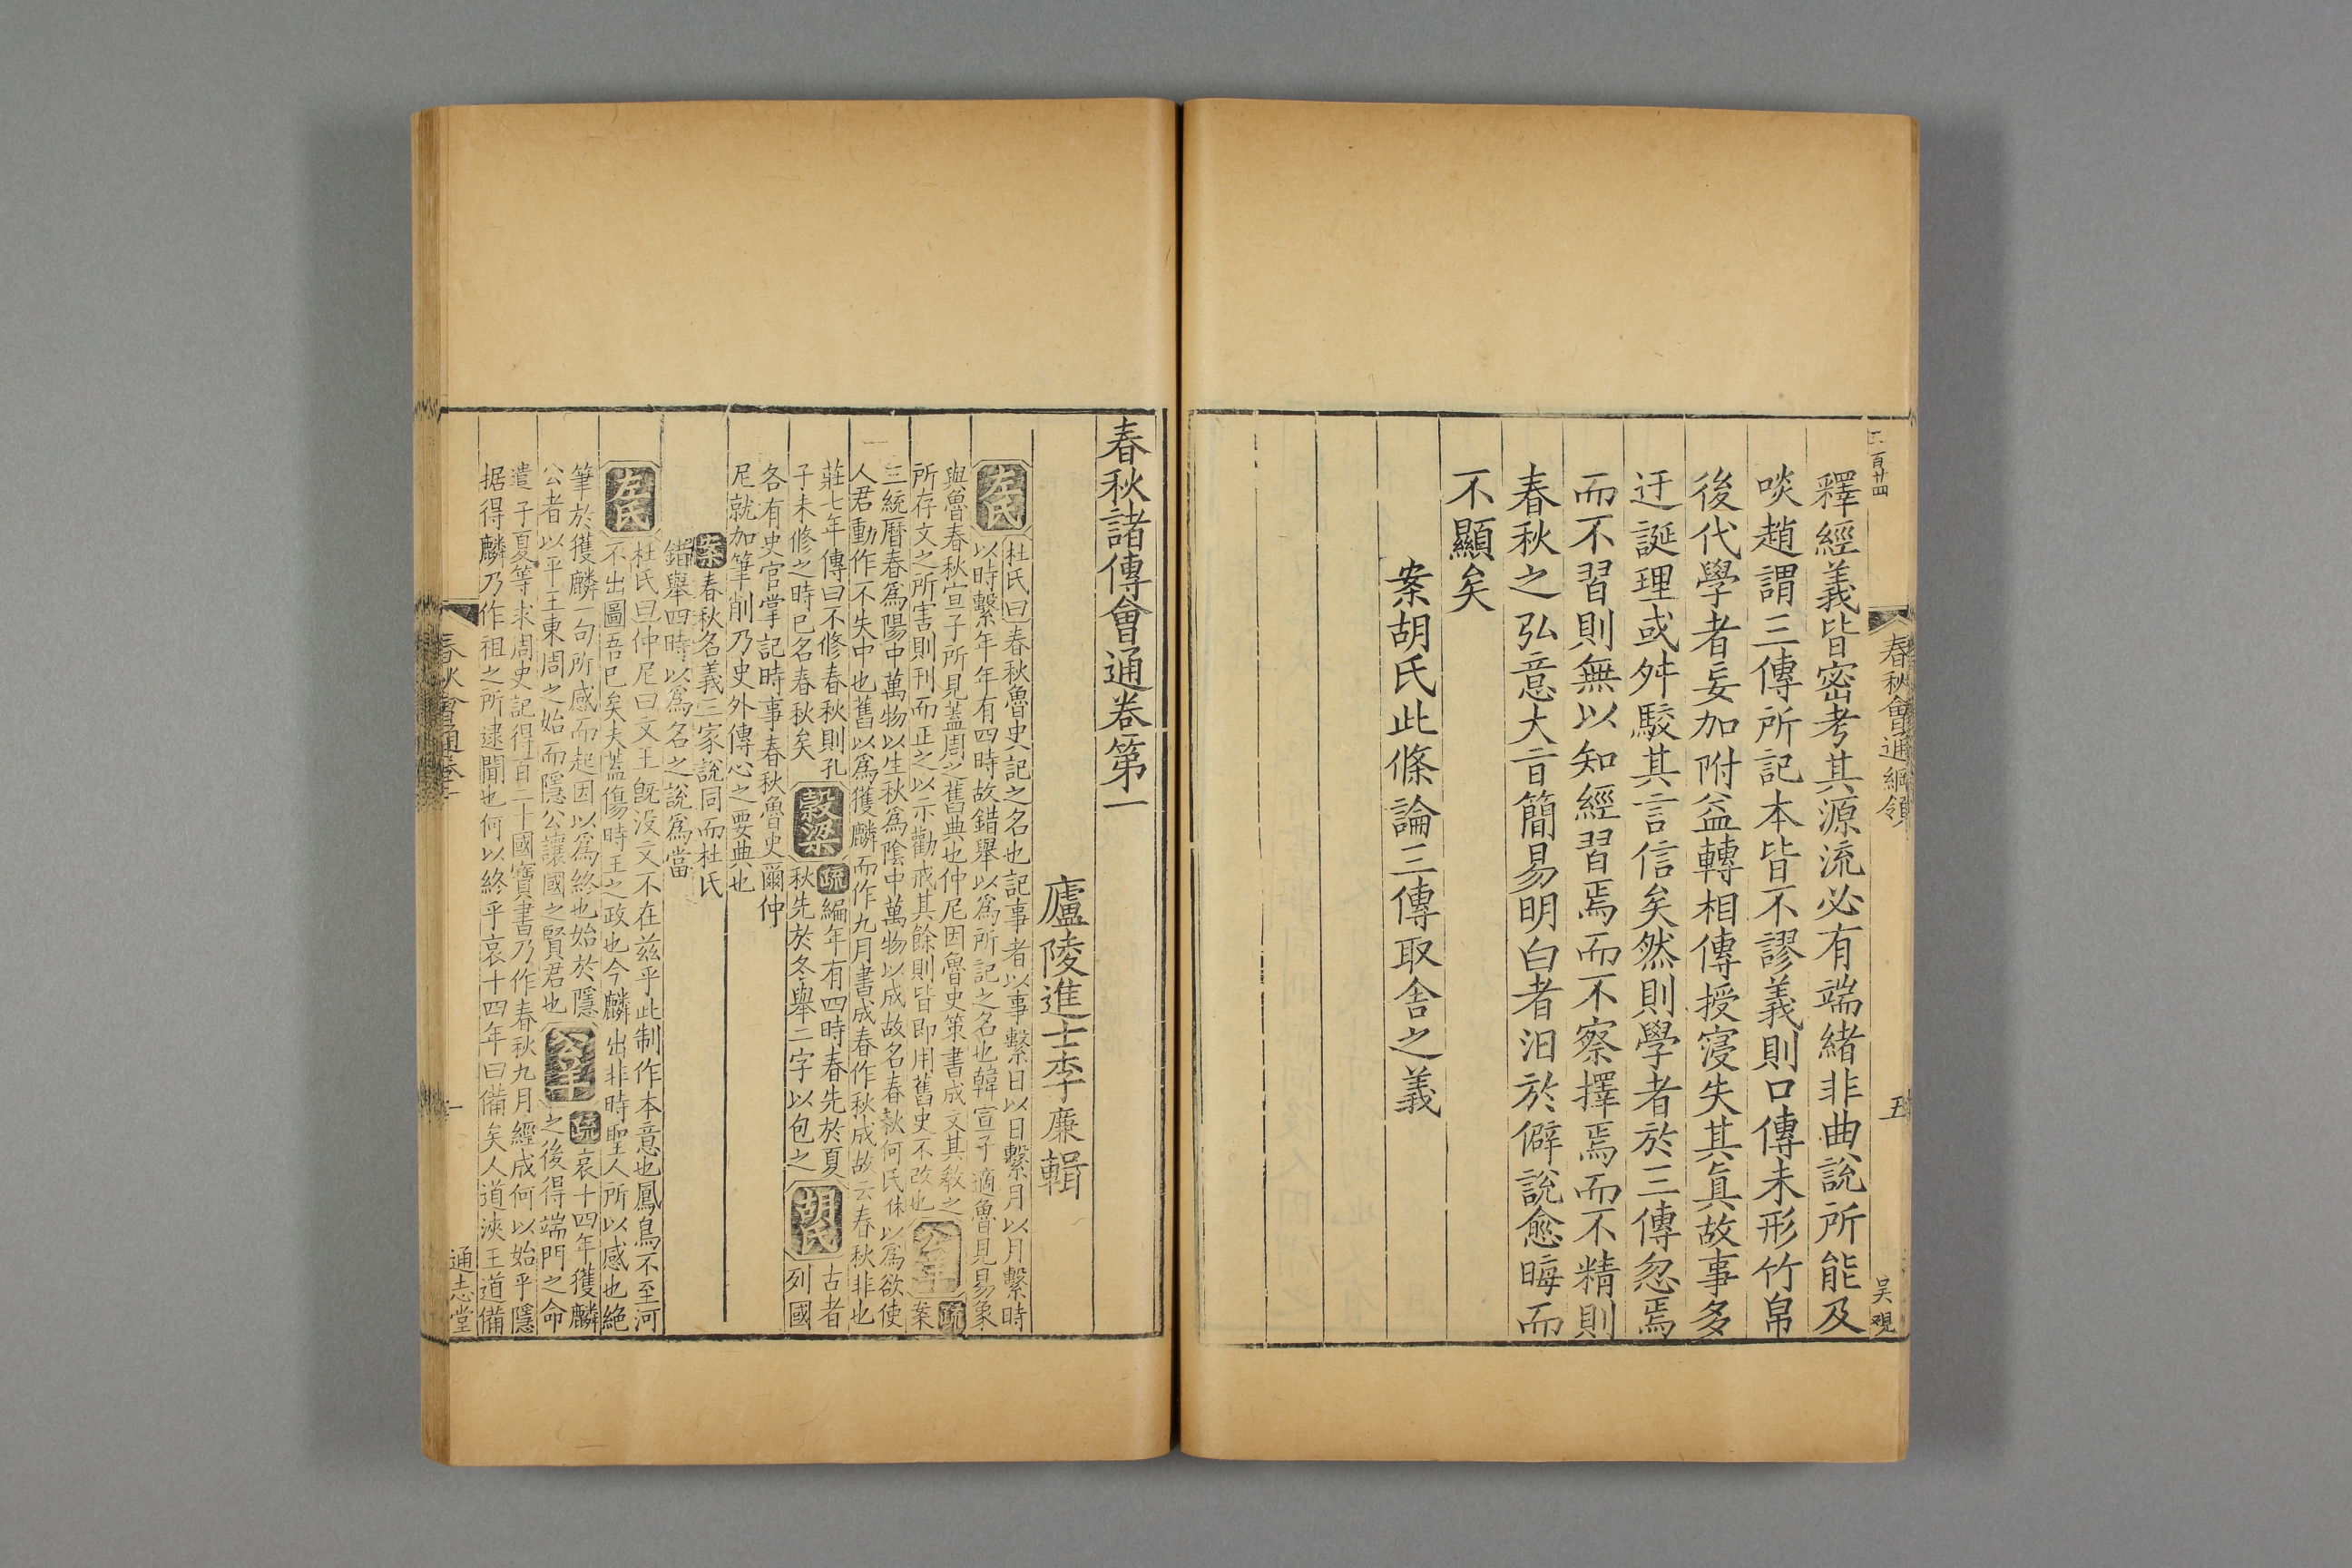 二百廿四
春秋會通綱領
五
吴覌
釋經義皆密考其源流必有端緒非曲說所能及
啖趙謂三傳所記本皆不謬義則口傳未形竹帛
後代學者妄加附益轉相傳授寖失其眞故事多
迂誕理或舛駮其言信矣然則學者於三傳忽焉
而不習則無以知經習焉而不察擇焉而不精則
春秋之弘意大旨簡易明白者汨於僻說愈晦而
不顯矣
案胡氏此條論三傳取舍之義
春秋諸傳會通卷第一
廬陵進士李廉輯
左氏
杜氏曰春秋魯史記之名也記事者以事繫日以日繫月以月繫時
以時繫年年有四時故錯舉以爲所記之名也韓宣子適魯見易象
與魯春秋宣子所見蓋周之舊典也仲尼因魯史策書成文其教之
所存文之所害則刊而正之以示勸戒其餘則皆即用舊史不改也
公羊
疏
案
三統曆春爲陽中萬物以生秋爲陰中萬物以成故名春秋何氏休以爲欲使
人君動作不失中也舊以爲獲麟而作九月書成春作秋成故云春秋非也
莊七年傳曰不修春秋則孔
子未修之時已名春秋矣
穀梁
疏
編年有四時春先於夏
秋先於冬舉二字以包之
胡氏
古者
列國
各有史官掌記時事春秋魯史爾仲
尼就加筆削乃史外傳心之要典也
案
春秋名義三家說同而杜氏
錯舉四時以爲名之說爲當
左氏
杜氏曰仲尼曰文王旣没文不在兹乎此制作本意也鳳鳥不至河
不出圖吾已矣夫蓋傷時王之政也今麟出非時聖人所以感也絶
筆於獲麟一句所感而起因以爲終也始於隱
公者以平王東周之始而隱公讓國之賢君也
公羊
疏
哀十四年獲麟
之後得端門之命
遣子夏等求周史記得百二十國寶書乃作春秋九月經成何以始乎隱
据得麟乃作祖之所逮聞也何以終乎哀十四年曰備矣人道浹王道備
春秋會通卷一
一
通志堂